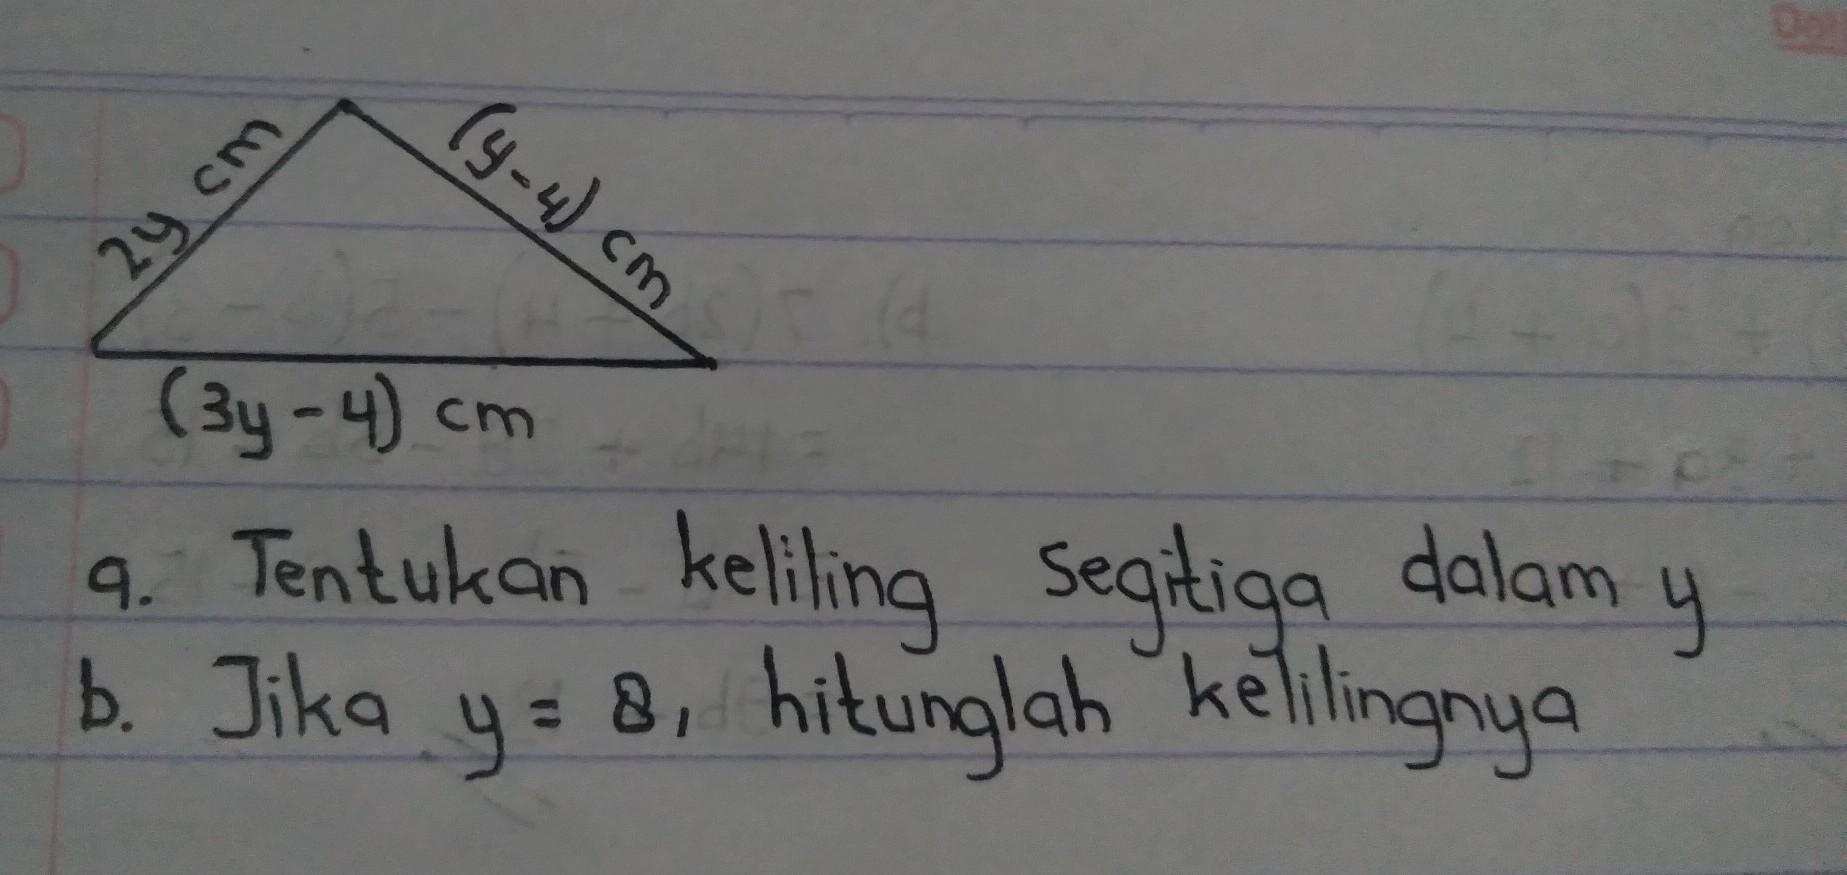 2y cm
(y-4) cm
(3y-4) cm
a. Tentukan keliling segitiga dalam y
b. Jika y = 8, hitunglah kelilingnya